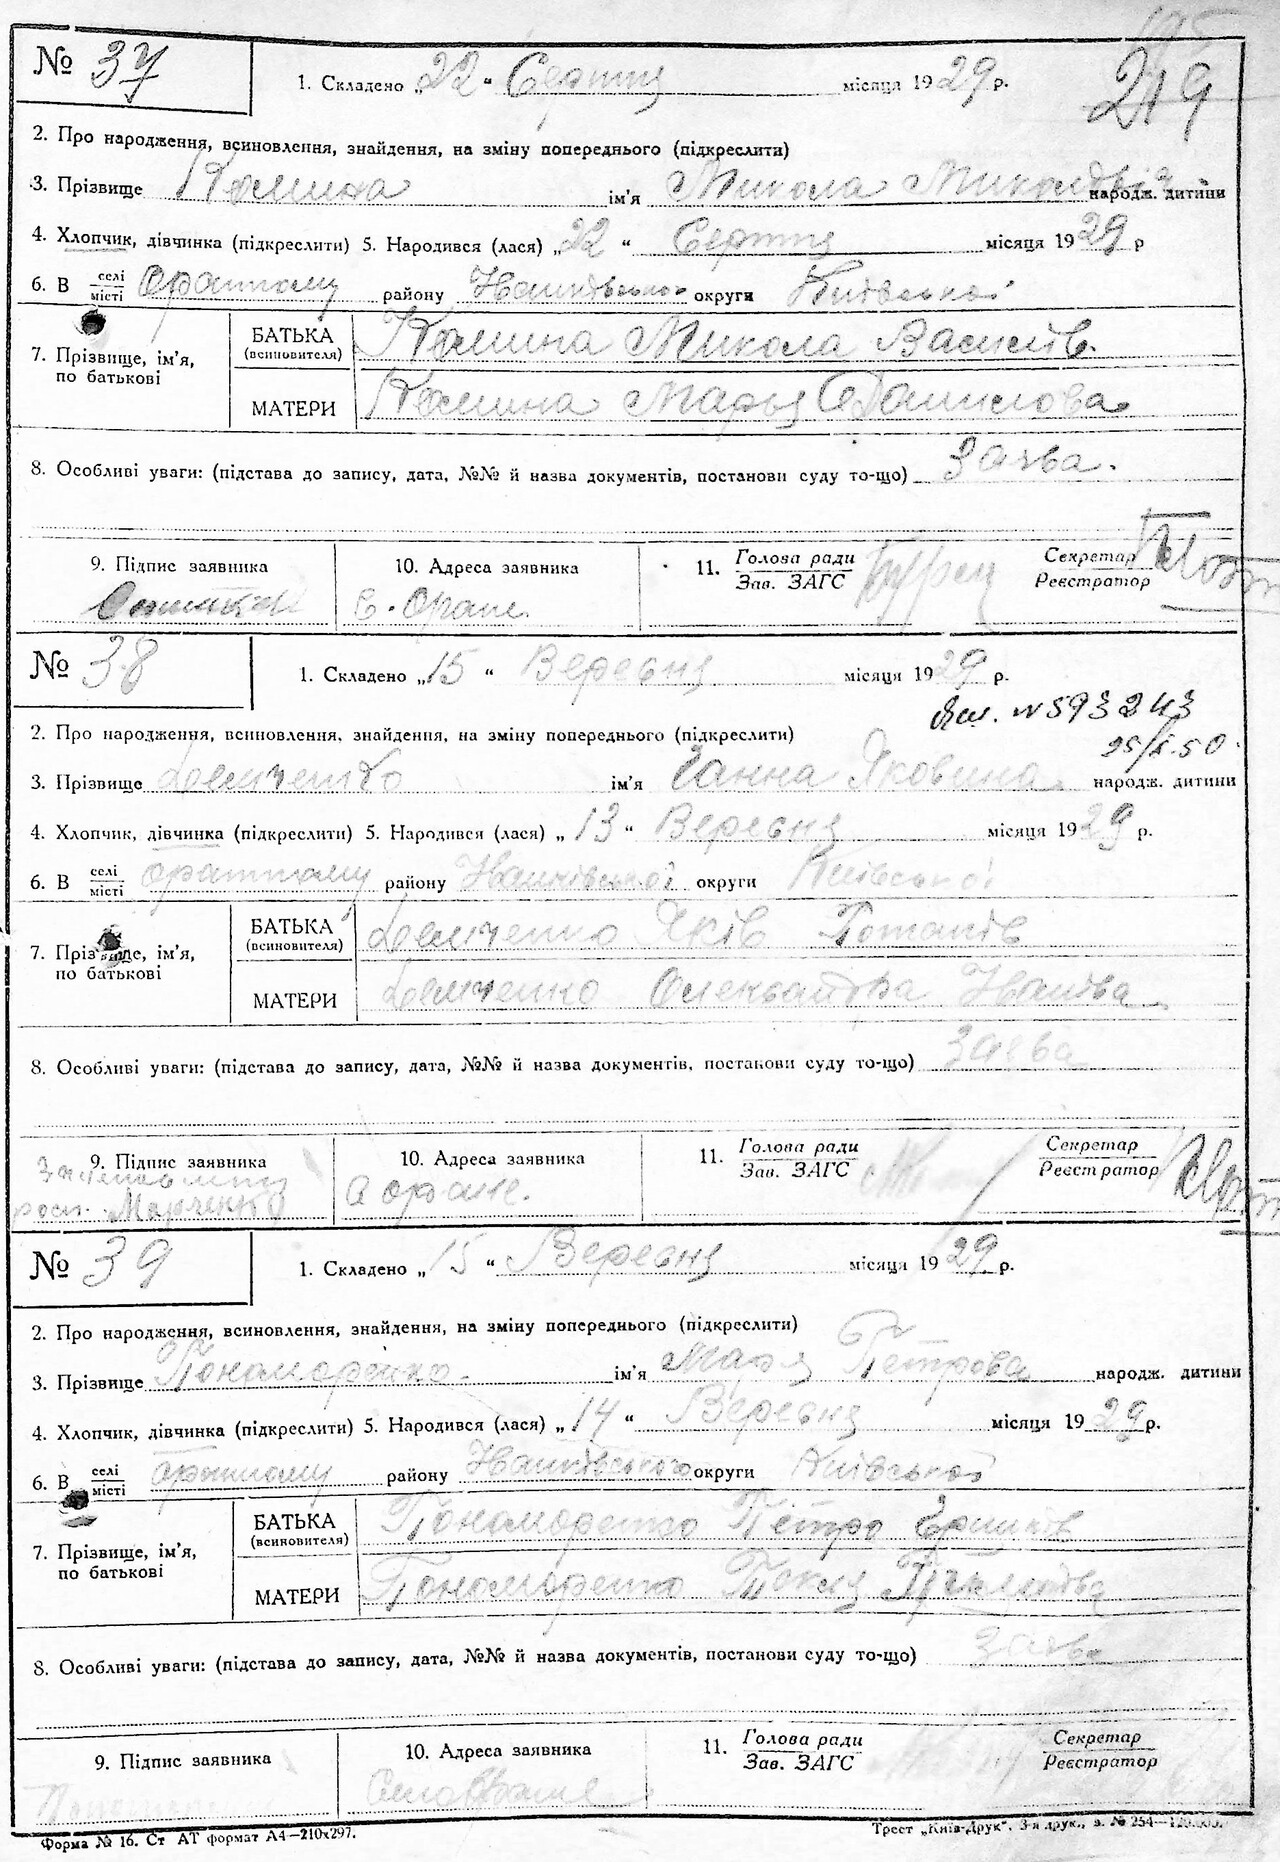 195
219
№ 37
1. Складено „22“ Серпня місяця 1929 р.
2. Про народження, всиновлення, знайдення, на зміну попереднього (підкреслити)
3. Прізвище Калина ім'я Микола Миколаїв народж. дитини
4. Хлопчик, дівчинка (підкреслити) 5. Народився (лася) „22“ Серпня місяця 1929 р
6. В селі/місті Оранному району округи Київської
7. Прізвище, ім'я, по батькові
БАТЬКА (всиновителя) Калина Микола Василів.
МАТЕРИ Калина Марья Данилова
8. Особливі уваги: (підстава до запису, дата, №№ й назва документів, постанови суду то-що) Заява.
9. Підпис заявника 10. Адреса заявника 11. Голова ради Секретар
Зав. ЗАГС Реєстратор
с. Оране.
№ 38
1. Складено „15“ Вересня місяця 1929 р.
№ 593243
25/X.50.
2. Про народження, всиновлення, знайдення, на зміну попереднього (підкреслити)
3. Прізвище Демченко ім'я Ганна Яковина народж. дитини
4. Хлопчик, дівчинка (підкреслити) 5. Народився (лася) „13“ Вересня місяця 1929 р.
6. В селі/місті Оранному району округи Київської
7. Прізвище, ім'я, по батькові
БАТЬКА (всиновителя) Демченко Яків Потапів
МАТЕРИ Демченко Олександра Іванова
8. Особливі уваги: (підстава до запису, дата, №№ й назва документів, постанови суду то-що) Заява
9. Підпис заявника 10. Адреса заявника 11. Голова ради Секретар
Зав. ЗАГС Реєстратор
росп. Марченко с Оране.
№ 39
1. Складено „15“ Вересня місяця 1929 р.
2. Про народження, всиновлення, знайдення, на зміну попереднього (підкреслити)
3. Прізвище Пономаренко ім'я Марья Петрова народж. дитини
4. Хлопчик, дівчинка (підкреслити) 5. Народився (лася) „14“ Вересня місяця 1929 р.
6. В селі/місті Оранному району округи Київської
7. Прізвище, ім'я, по батькові
БАТЬКА (всиновителя) Пономаренко Петро
МАТЕРИ Пономаренко Текля
8. Особливі уваги: (підстава до запису, дата, №№ й назва документів, постанови суду то-що) Заява
9. Підпис заявника 10. Адреса заявника 11. Голова ради Секретар
Зав. ЗАГС Реєстратор
Село Оране
Форма № 16. Ст АТ формат А4—210х297. Трест „Київ-Друк“. 3-я друк., з. № 254—120.000.